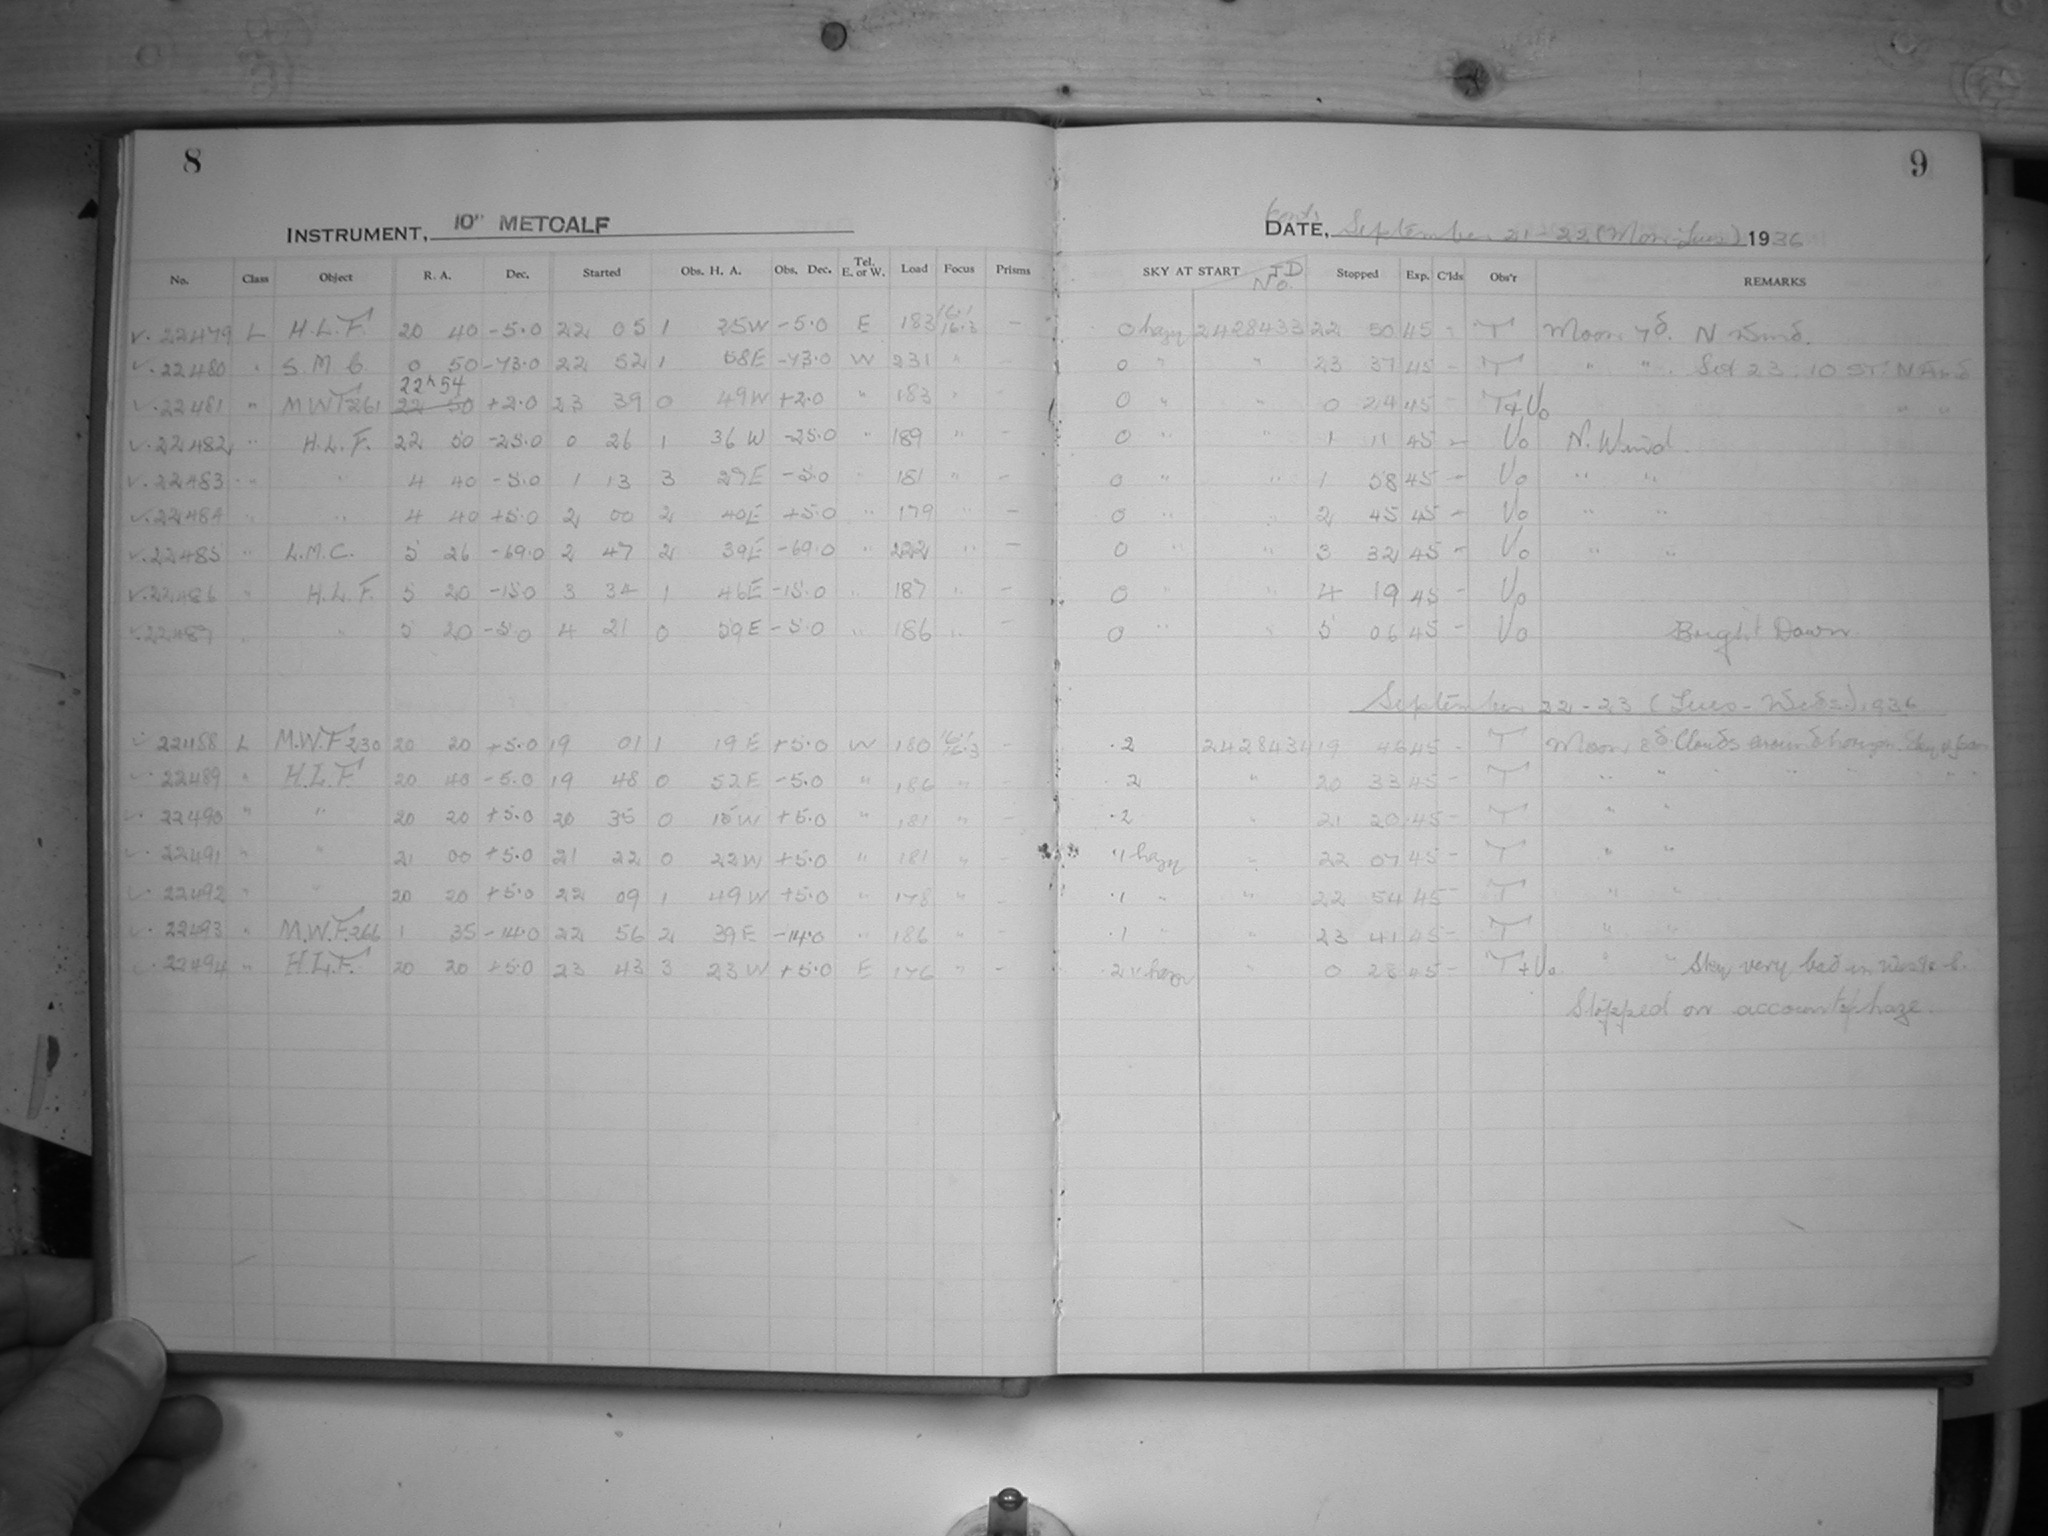 8
INSTRUMENT, 10" METCALF
No. Class Object R. A. Dec. Started Obs. H. A. Obs. Dec. Tel. E. or W. Load Focus Prisms
v. 22479 L H.L.F. 20 40 -5.0 22 05 1 25W -5.0 E 183 16.1 16.3 -
v. 22480 " S.M.C. 0 50 -73.0 22 52 1 58E -73.0 W 231 " -
22h 54
v. 22481 " MWF261 22 50 +2.0 23 39 0 49W +2.0 " 183 " -
v. 22482 " H.L.F. 22 50 -25.0 0 26 1 36 W -25.0 " 189 " -
v. 22483 " " 4 40 -5.0 1 13 3 27E -5.0 " 181 " -
v. 22484 " " 4 40 +5.0 2 00 2 40E +5.0 " 179 " -
v. 22485 " L.M.C. 5 26 -69.0 2 47 2 39E -69.0 " 222 " -
v. 22486 " H.L.F. 5 20 -15.0 3 34 1 46E -15.0 " 187 " -
v. 22487 " " 5 20 -5.0 4 21 0 59E -5.0 " 186 " -
v 22488 L M.W.F 230 20 20 +5.0 19 01 1 19 E +5.0 W 180 16.1 16.3 -
v. 22489 " H.L.F. 20 40 -5.0 19 48 0 52E -5.0 " 186 " -
v. 22490 " " 20 20 +5.0 20 35 0 15W +5.0 " 181 " -
v. 22491 " " 21 00 +5.0 21 22 0 22W +5.0 " 181 " -
v. 22492 " " 20 20 +5.0 22 09 1 49W +5.0 " 178 " -
v. 22493 " M.W.F. 266 1 35 -14.0 22 56 2 39E -14.0 " 186 " -
v. 22494 " H.L.F. 20 20 +5.0 23 43 3 23W +5.0 E 176 " -
9
Cont.
DATE, September 21-22 (Mon-Tues) 1936
SKY AT START JD No. Stopped Exp. C'lds Obs'r REMARKS
0 hazy 2428433 22 50 45 - T Moon 7d. N Wind.
0 " " 23 37 45 - T " ". Set 23.10 ST. N Wind
0 " " 0 24 45 - T+Vo " "
0 " " 1 11 45 - Vo N. Wind
0 " " 1 58 45 - Vo " "
0 " " 2 45 45 - Vo " "
0 " " 3 32 45 - Vo " "
0 " " 4 19 45 - Vo
0 " " 5 06 45 - Vo Bright Dawn
September 22-23 (Tues-Wed) 1936
.2 2428434 19 46 45 - T Moon 8d. Clouds around horizon. Sky
.2 " 20 33 45 - T " " " " " "
.2 " 21 20 45 - T " "
.1 hazy " 22 07 45 - T " "
.1 " " 22 54 45 - T " "
.1 " " 23 41 45 - T " "
.2 v hazy " 0 28 45 - T+Vo " " Sky very bad in
Stopped on account of haze.